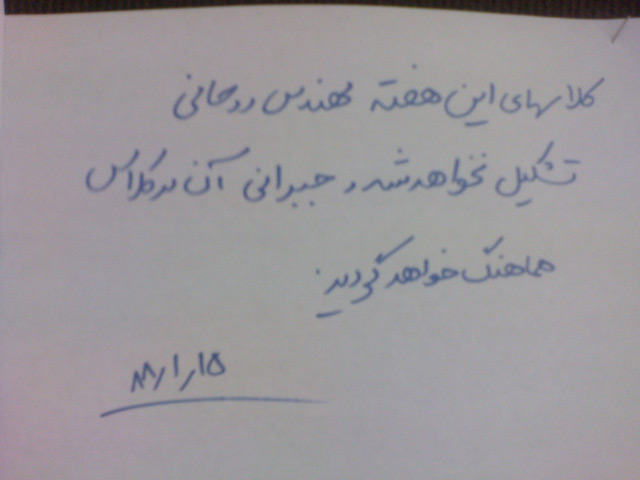 کلاسهای این هفته مهندس روحانی
تشکیل نخواهد شد و جبرانی آن در کلاس
هماهنگ خواهد گردید.
۱۵ر۱ر۸۸